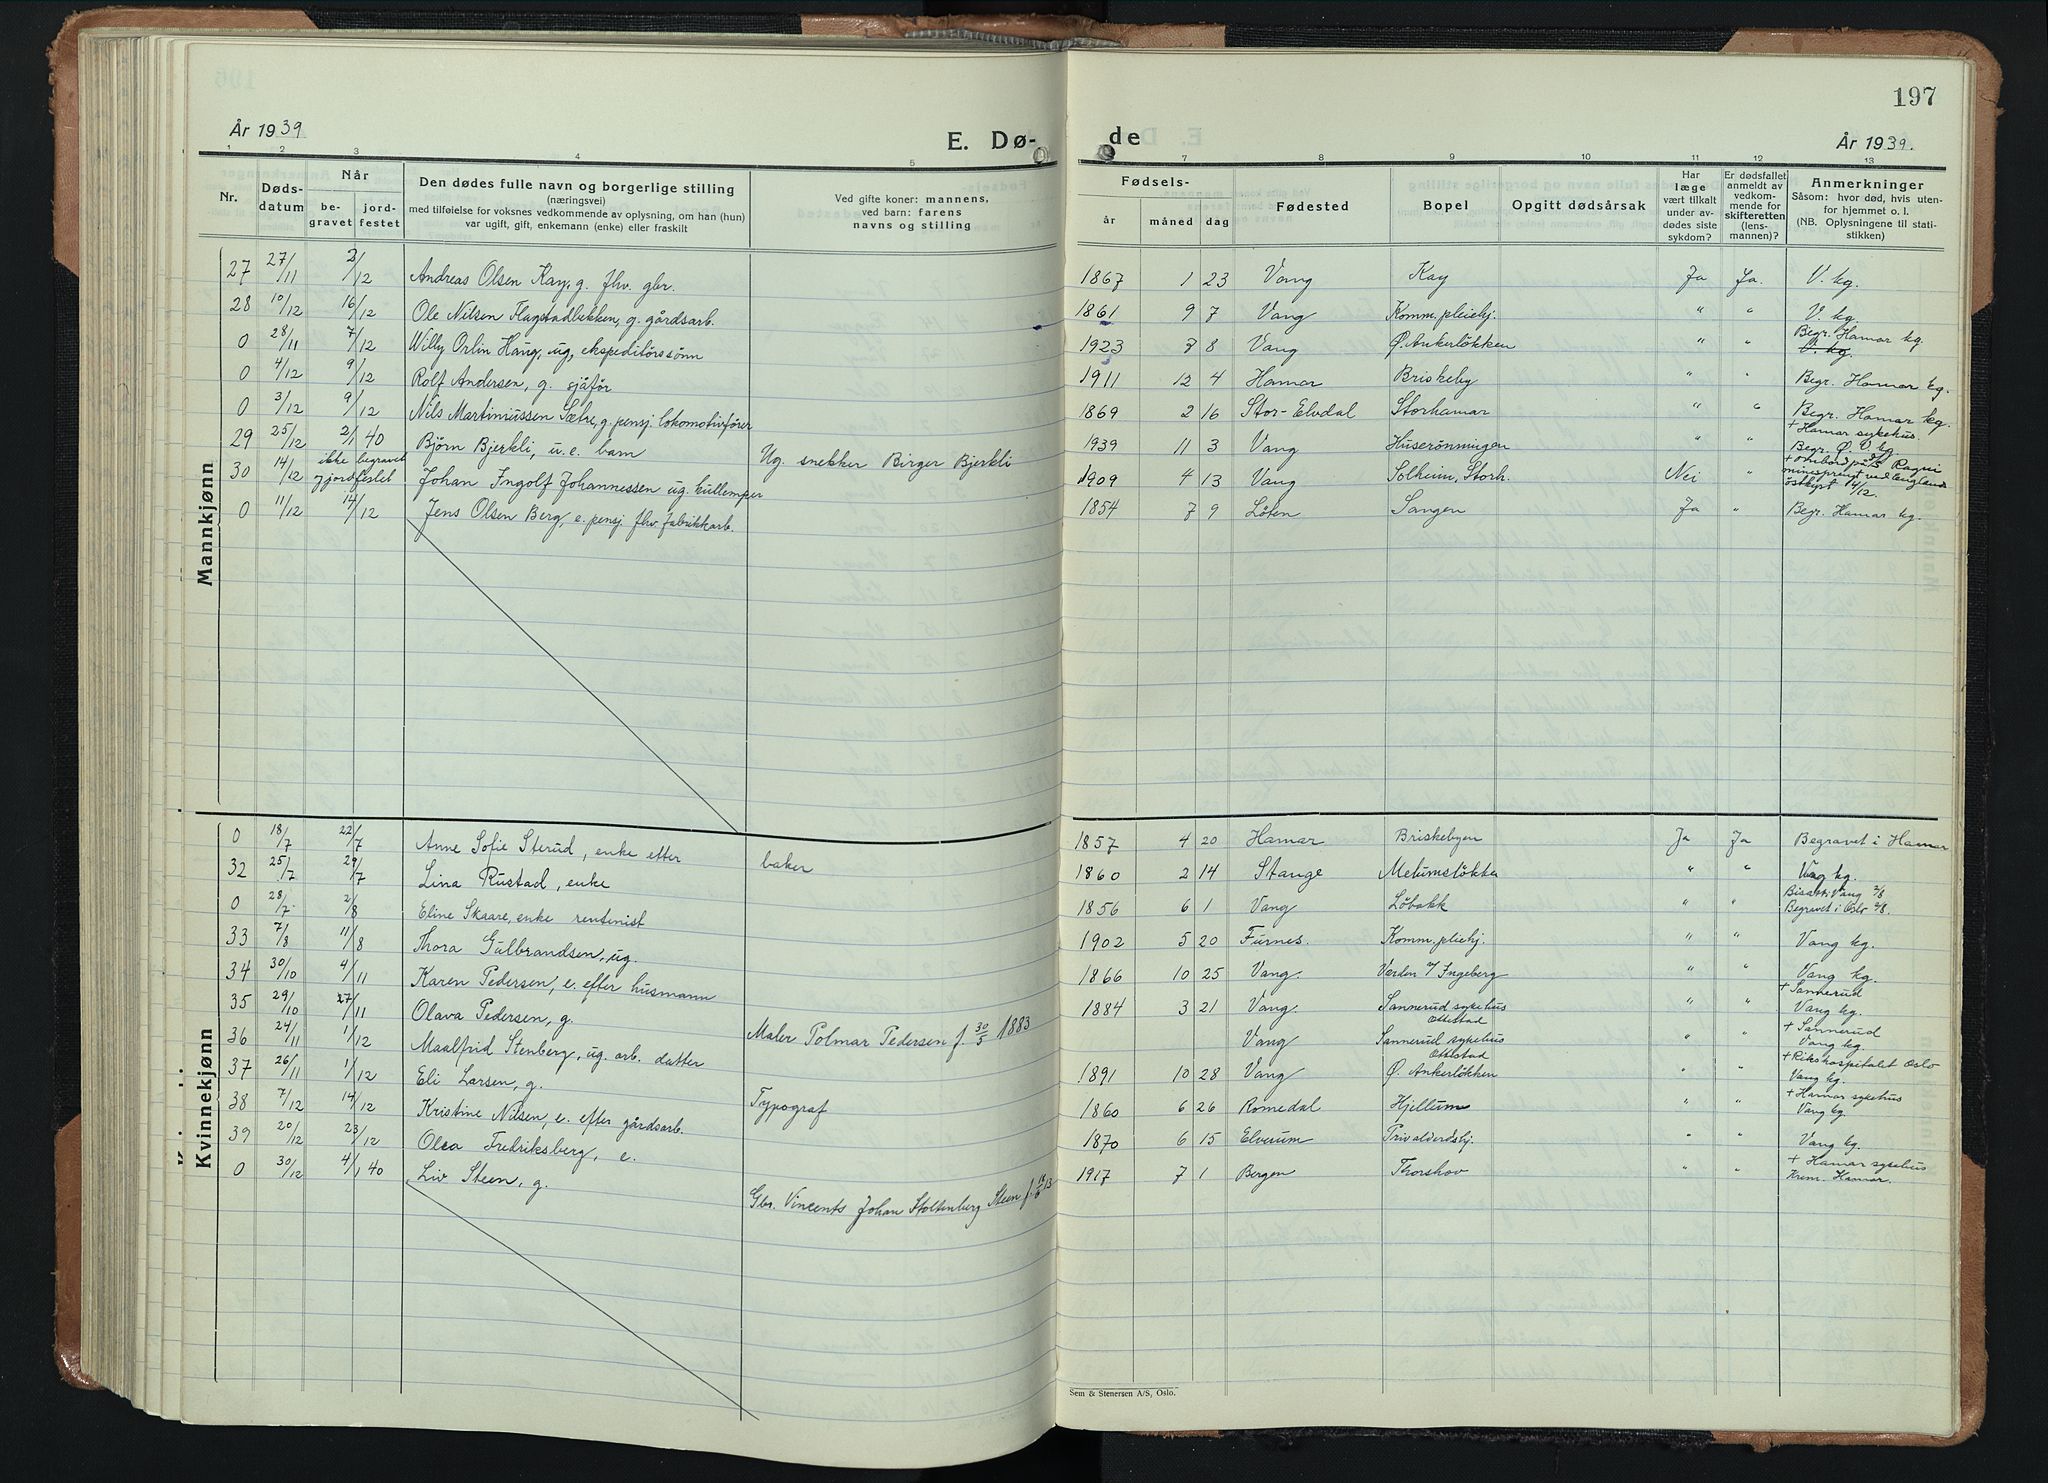 197
År 1939
E. Dø-
de
År 1939.
1 2 3 4 5 7 8 9 10 11 12 13
Nr.
Døds-
datum
Når
be-
gravet
jord-
festet
Den dødes fulle navn og borgerlige stilling
(næringsvei)
med tilføielse for voksnes vedkommende av oplysning, om han (hun)
var ugift, gift, enkemann (enke) eller fraskilt
Ved gifte koner: mannens,
ved barn: farens
navns og stilling
Fødsels-
år
måned
dag
Fødested
Bopel
Opgitt dødsårsak
Har
læge
vært tilkalt
under av-
dødes siste
sykdom?
Er dødsfallet
anmeldt av
vedkom-
mende for
skifteretten
(lens-
mannen)?
Anmerkninger
Såsom: hvor død, hvis uten-
for hjemmet o. l.
(NB. Oplysningene til stati-
stikken)
Mannkjønn
27 27/11 2/12 Andreas Olsen Kay, g. fhv. gbr. 1867 1 23 Vang Kay Ja Ja. V. kg.
28 10/12 16/12 Ole Nilsen Flagstadbekken, g. gårdsarb. 1861 9 7 Vang Komm. pleiehj. " " V. kg.
0 28/11 7/12 Willy Orlin Haug, ug, ekspeditørssønn 1923 7 8 Vang Ø. Ankerløkken " " Begr. Hamar kg. V. kg.
0 4/12 9/12 Rolf Andersen, g. sjåfør 1911 12 4 Hamar Briskeby " " Begr. Hamar kg.
0 3/12 9/12 Nils Martiniussen Sætre, g. pensj. lokomotivfører 1869 2 16 Stor-Elvdal Storhamar " " Begr. Hamar kg.
29 25/12 2/1 40 Bjørn Bjerkli, u. e. barn Ug. snekker Birger Bjerkli 1939 11 3 Vang Huserønningen " " + Hamar sykehus. Begr. Ø. V. kg.
30 14/12 ikke begravet, jordfestet Johan Ingolf Johannessen ug. kullemper 1909 4 13 Vang Solheim, Storh. Nei " + ombord på Ragni minesprengt ved Englands østkyst 14/12.
0 11/12 14/12 Jens Olsen Berg, e. pensj. fhv. fabrikkarb. 1854 7 9 Løten Sangen Ja " Begr. Hamar kg.
Kvinnekjønn
0 18/7 22/7 Anne Sofie Sterud, enke efter baker 1857 4 20 Hamar Briskebyen Ja Ja Begravet i Hamar
32 25/7 29/7 Lina Rustad, enke 1860 2 14 Stange Melumsløkka " " Vang kg.
0 28/7 2/8 Eline Skaare, enke rentenist 1856 6 1 Vang Løbakk " " Bisatt: Vang 2/8 Begravet i Oslo 2/8.
33 7/8 11/8 Thora Gulbrandsen, ug. 1902 5 20 Furnes. Komm. pleiehj. " " Vang kg.
34 30/10 4/11 Karen Pedersen, e. efter husmann 1866 10 25 Vang. Verden u/ Ingeberg " " Vang kg.
35 29/10 27/11 Olava Pedersen, g. Maler Polmar Pedersen f. 30/5 1883 1884 3 21 Vang. Sannerud sykehus Ottestad " " + Sannerud Vang kg.
36 24/11 1/12 Maalfrid Stenberg, ug. arb. datter Vang Sannerud sykehus Ottestad " + Sannerud Vang kg.
37 26/11 1/12 Eli Larsen, g. Typograf 1891 10 28 Vang Ø. Ankerløkken " " + Rikshospitalet Oslo Vang kg.
38 7/12 14/12 Kristine Nilsen, e. efter gårdsarb. 1860 6 26 Romedal Hjellum " " + Hamar sykehus Vang kg.
39 20/12 23/12 Olea Fredriksberg, e. 1870 6 15 Elverum Trivaldredshj. " " Vang kg.
0 30/12 4/1 40 Liv Steen, g. Gbr. Vincents Johan Stoltenberg Steen 1917 7 1 Bergen Thorshov " " + Hamar sykehus Krem. Hamar.
Sem & Stenersen A/S, Oslo.